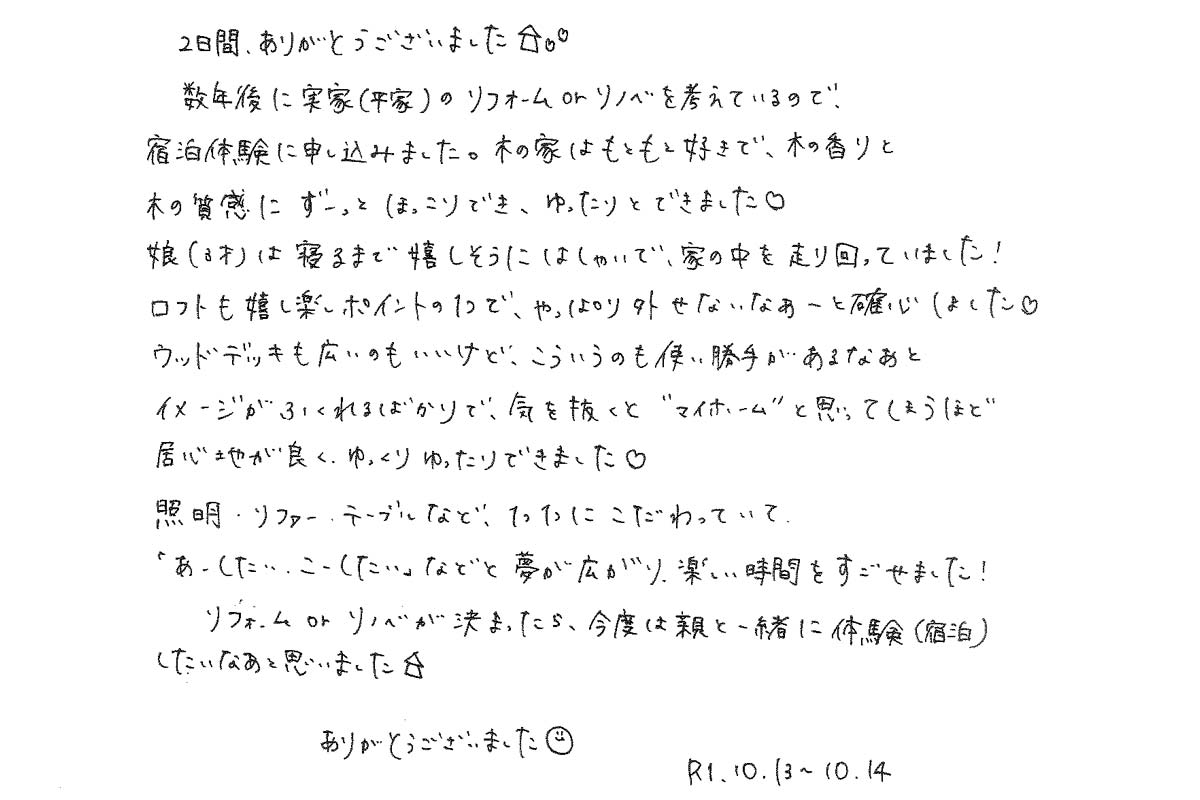 2日間、ありがとうございました
数年後に実家(平家)のリフォームorリノベを考えているので、
宿泊体験に申し込みました。木の家はもともと好きで、木の香りと
木の質感にずーっとほっこりでき、ゆったりとできました♡
娘(3才)は寝るまで嬉しそうにはしゃいで、家の中を走り回っていました!
ロフトも嬉し楽しポイントの1つで、やっぱり外せないなあーと確心しました♡
ウッドデッキも広いのもいいけど、こういうのも使い勝手があるなあと
イメージがふくれるばかりで、気を抜くと"マイホーム"と思ってしまうほど
居心地が良く、ゆっくりゆったりできました♡
照明・ソファー・テーブルなど、1つ1つにこだわっていて、
「あーしたい、こーしたい」などと夢が広がり、楽しい時間をすごせました!
リフォームorリノベが決まったら、今度は親と一緒に体験(宿泊)
したいなあと思いました
ありがとうございました☺
R1.10.13~10.14